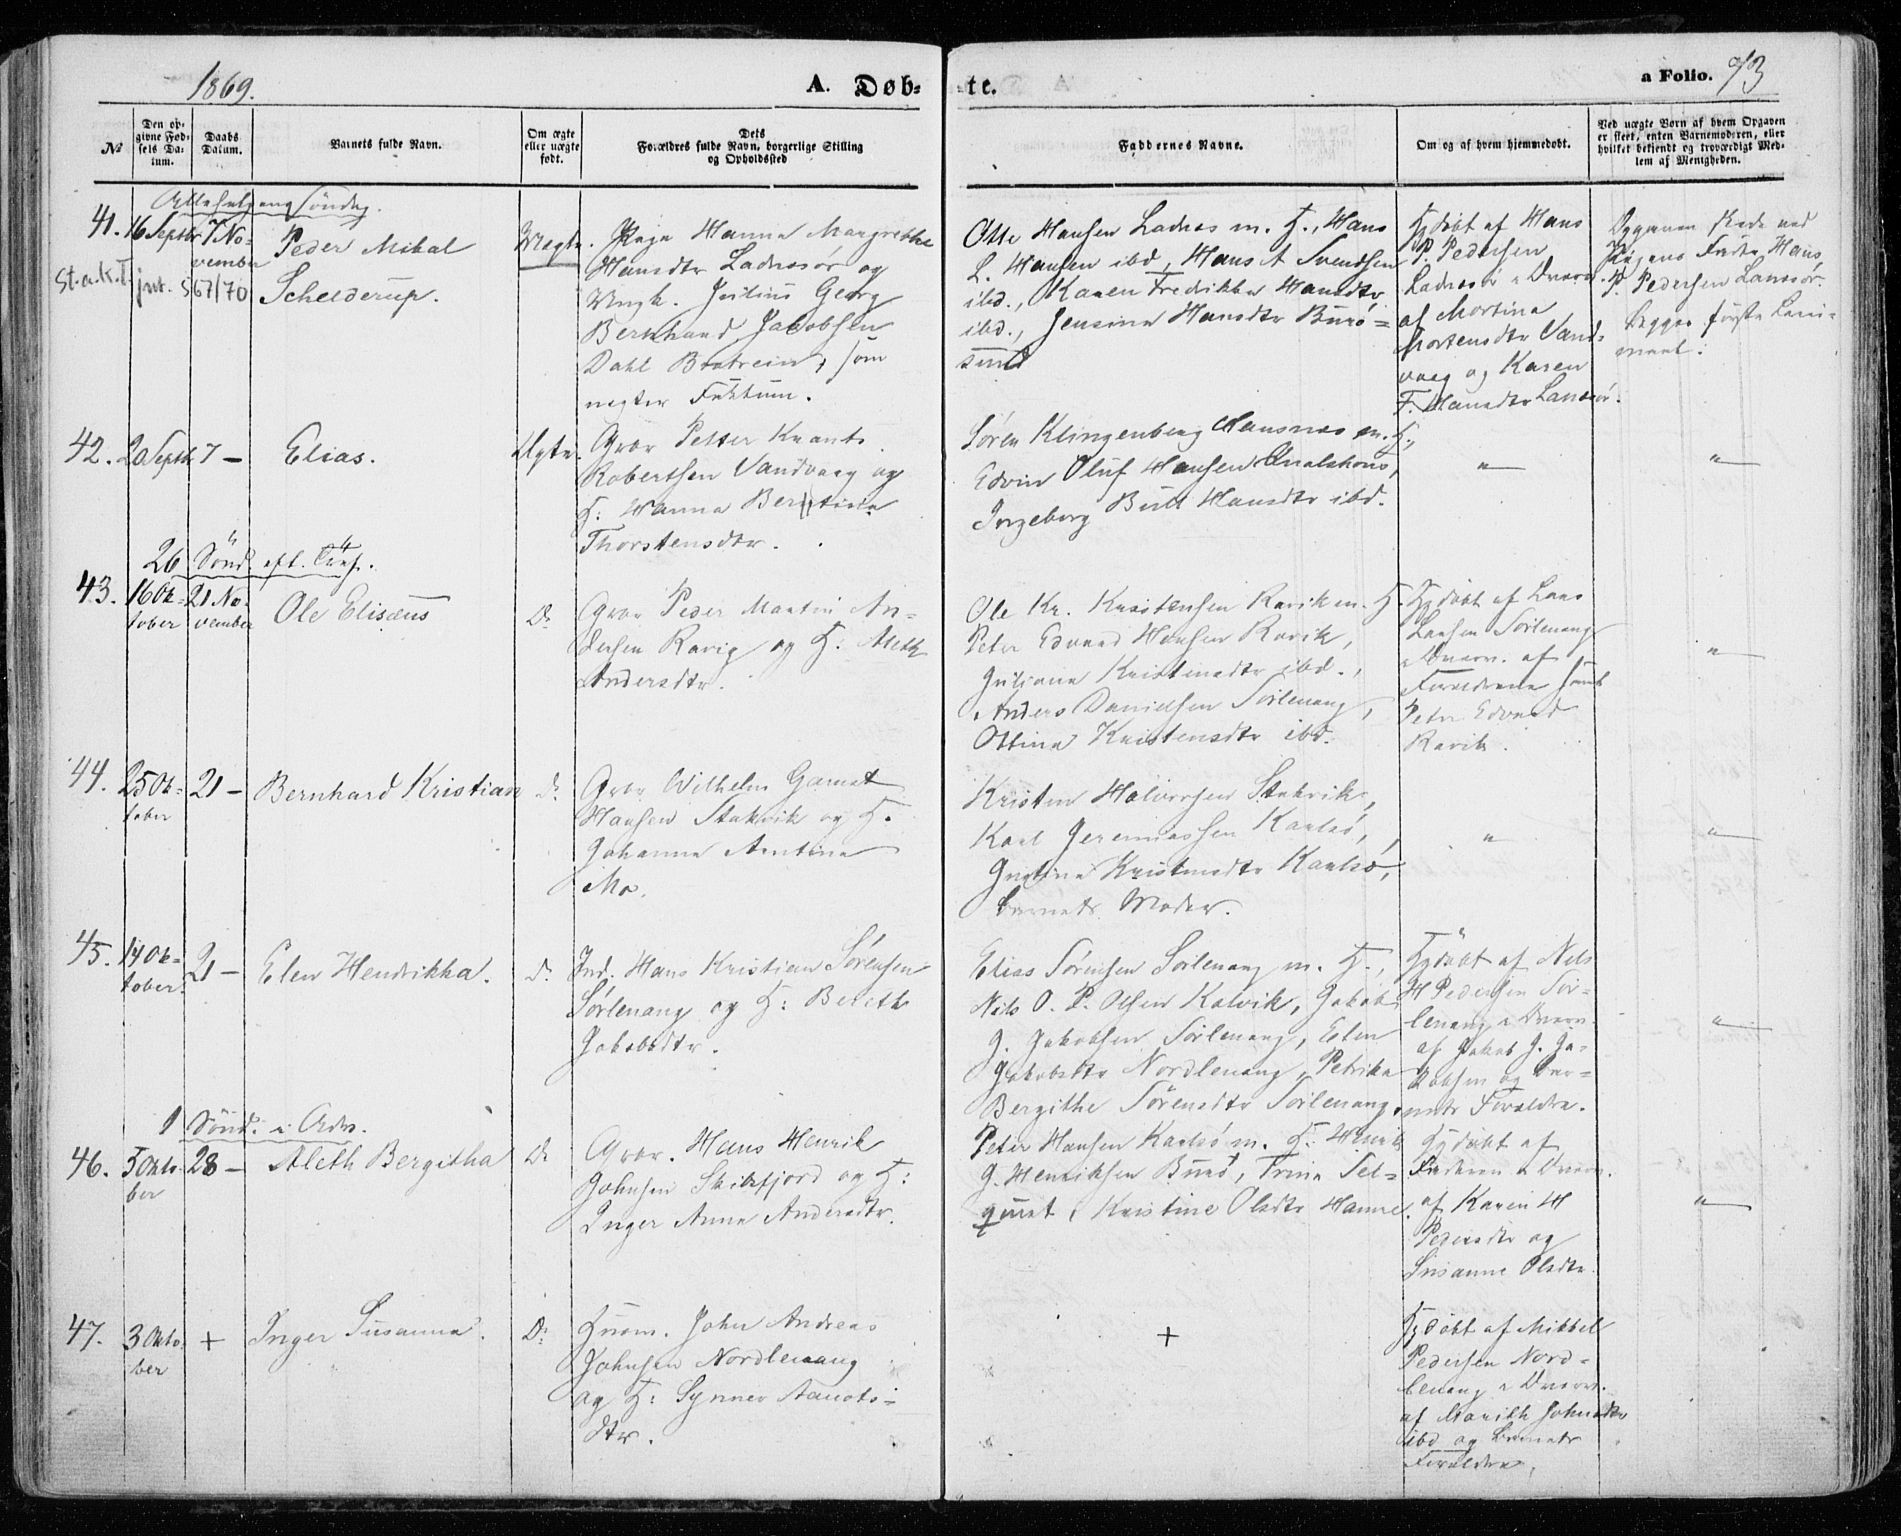 1869.
A. Døb-
te.
a Folio. 73
No
Den op-
givne Fød-
sels Da-
tum.
Daabs
Datum.
Barnets fulde Navn.
Om ægte
eller uægte
født.
Dets
Forældres fulde Navn, borgerlige Stilling
og Opholdssted
Faddernes Navne.
Om og af hvem hjemmedøbt.
Ved uægte Børn af hvem Opgaven
er skeet, enten Barnemoderen, eller
hvilket bekjendt og troværdigt Med-
lem af Menigheden.
Allehelgens søndag.
41.
16 Septbr
7 No-
vember
St. a. k. T. jnt. 567/70
Peder Mikal
Schelderup.
Uægte.
Pige Hanna Margrethe
Hansdtr Ladnesør og
Ungk. Julius Georg
Bernhard Jakobsen
Dahl, som
negter Faktum.
Otte Hansen Ladnes m. H., Hans
L. Hansen ibd., Hans A Svendsen
ibd., Karen Fredrikke Hansdtr
ibd., Jensine Hansdtr Burø-
sund
Hjdøbt af Hans
P. Pedersen
Ladnesør
af Mortine
Mortensdtr Vand-
vaag og Karen
F. Hansdtr Lanesør.
Opgaven skede ved
Pigens Fader Hans
P. Pedersen Lanesør.
Begges første Leier-
maal.
42.
20 Septbr
7 –
Elias.
Ægte.
Grdr Petter Krantz
Robertsen Vandvaag og
H: Hanna Berntine
Thorstensdtr.
Søren Klingenberg Hansnes m. H.,
Edvin Oluf Hansen
Ingeborg Hansdtr ibd.
"
"
26 Sønd. eft. Tref.
43.
16 Ok-
tober
21 No-
vember
Ole Elisæus
Do
Grdr Peder Martin An-
dersen Ravig og H: Aleth
Andersdtr.
Ole Kr. Kristensen Ravik m. H.
Peter Edvard Hansen Ravik,
Juliane Kristensdtr ibd.,
Anders Danielsen Sørlenang,
Ottine Kristensdtr ibd.
Hjdøbt af Lars
Larsen Sørlenang
af
Forældrene samt
Peter Edvard
Ravik.
"
44.
25 Ok-
tober
21 –
Bernhard Kristian
do
Grdr Wilhelm Gamst
Hansen Stakvik og H.
Johanna Arntine
Mo.
Kristen Halvorsen Stakvik,
Karl Jeremiassen Karlsø,
Justine Kristensdtr Karlsø,
Barnets Moder.
"
"
45.
14 Ok-
tober
21 –
Elen Hendrikka.
do
Ind. Hans Kristian Sørensen
Sørlenang og H: Bereth
Jakobsdtr.
Elias Sørensen Sørlenang m. H.,
Nils O. P. Olsen Kalvik, Jakob
J. Jakobsen Sørlenang, Elen
Jakobsdtr Nordlenang, Petrikke
Bergithe Sørensdtr Sørlenang.
Hjdøbt af Nils
H Pedersen Sør-
lenang
af Jakob J. Ja-
kobsen og Bar-
nets Forældre.
"
1 Sønd. i Adv.
46.
5 Okto-
ber
28 –
Aleth Bergitha
Do
Grdr. Hans Henrik
Johnsen Skibsfjord og H:
Inger Anna Andersdtr.
Peter Hansen Karlsø m. H. Henrik
J. Henriksen Burø, Trine Sel-
quist, Kristine Olsdtr Hamre.
Hjdøbt af
Faderen
af Karen H
Pedersdtr og
Susanne Olsdtr.
"
47.
3 Okto-
ber
+
Inger Susanna.
Do
Husm. John Andreas
Johnsen Nordlenang
og H: Synnev Aanots-
dtr.
+
Hjdøbt af Mikkel
Pedersen Nord-
lenang
af Marith Johnsdtr
ibd og Barnets
Forældre.